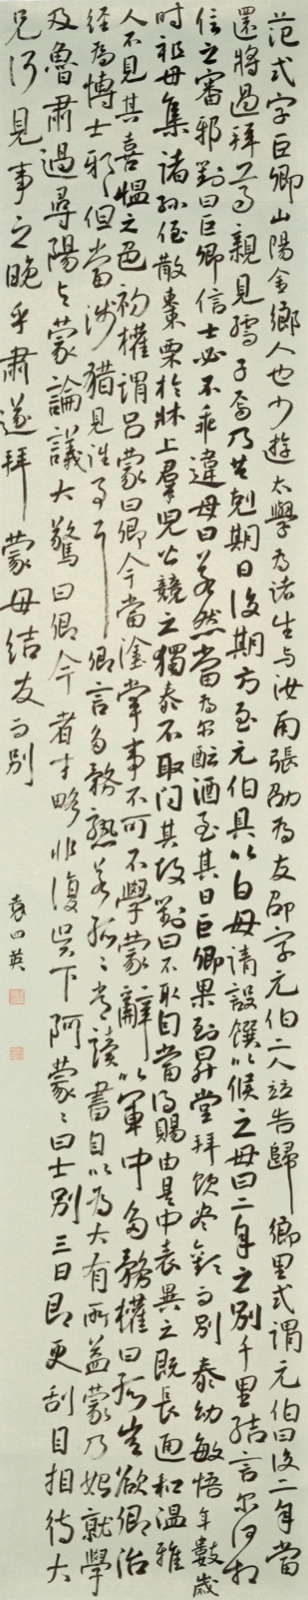 范式字巨卿山陽金鄉人也少遊太學為諸生与汝南張劭為友劭字元伯二人竝告歸鄉里式謂元伯曰後二年當
還將過拜尊親見孺子焉乃共剋期日後期方至元伯具以白母請設饌以候之母曰二年之別千里結言尔何相
信之審邪對曰巨卿信士必不乖違母曰若然當為尔醞酒至其日巨卿果到昇堂拜飲尽歡而別 泰幼敏悟年數歲
時祖母集諸孫侄散棗栗於牀上羣兒皆競之獨泰不取问其故對曰不取自當得賜由是中表異之既長通和温雅
人不見其喜愠之色 初權謂呂蒙曰卿今當塗掌事不可不學蒙辭以軍中多務權曰孤豈欲卿治
經為博士邪但當涉獵見往事耳卿言多務孰若孤孤常讀書自以為大有所益蒙乃始就學
及魯肅過尋陽与蒙論議大驚曰卿今者才略非復吳下阿蒙蒙曰士別三日即更刮目相待大
兄何見事之晚乎肅遂拜蒙母结友而別